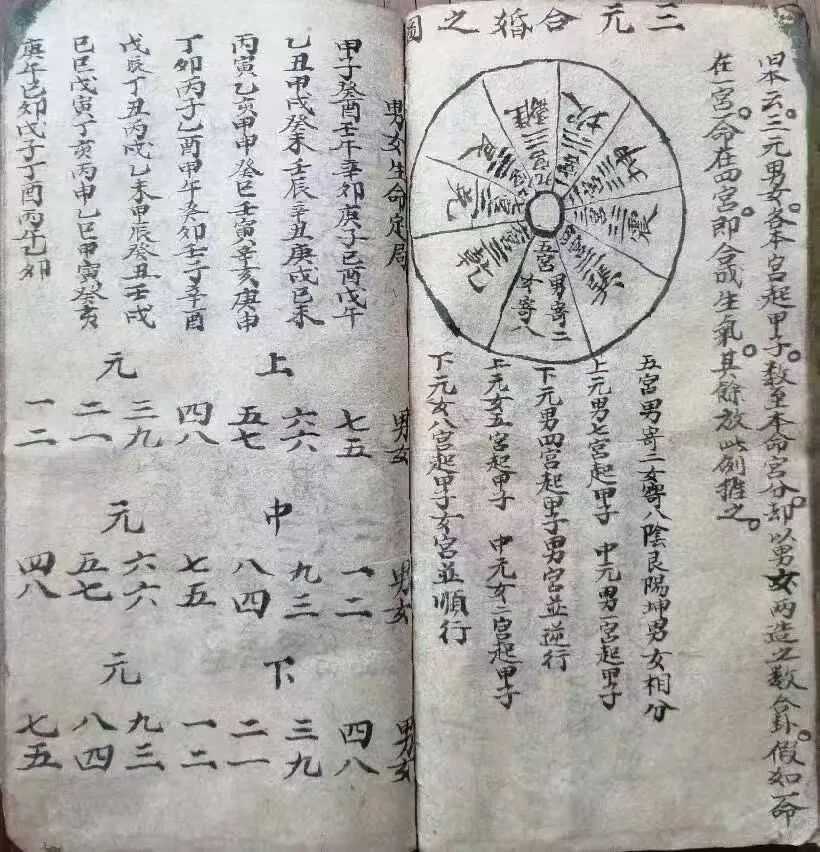 三元合婚之圖
旧本云。三元男女。各本宮起甲子。数至本命宮分。却以男女两造之数合卦。假如一命
在一宮。一命在四宮。即合成生氣。其餘放此例推之。
坎
坤
震
巽
五宮
男寄二
女寄八
乾
兌
艮
離
五宮男寄二女寄八陰艮陽坤男女相分
上元男七宮起甲子 中元男一宮起甲子
下元男四宮起甲子男宮並逆行
上元女五宮起甲子 中元女二宮起甲子
下元女八宮起甲子女宮並順行
男女生命定局
甲子癸酉壬午辛卯庚子己酉戊午
乙丑甲戌癸未壬辰辛丑庚戌己未
丙寅乙亥甲申癸巳壬寅辛亥庚申
丁卯丙子乙酉甲午癸卯壬子辛酉
戊辰丁丑丙戌乙未甲辰癸丑壬戌
己巳戊寅丁亥丙申乙巳甲寅癸亥
庚午己卯戊子丁酉丙午乙卯
上元
男女
七五
六六
五七
四八
三九
二一
一二
中元
男女
一二
九三
八四
七五
六六
五七
四八
下元
男女
四八
三九
二一
一二
九三
八四
七五